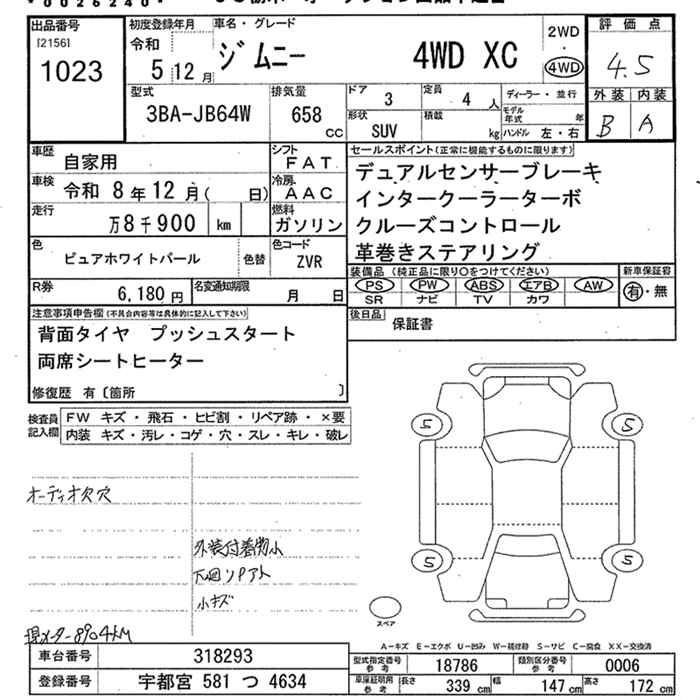 *0026240*
出品番号
[2156]
1023
初度登録年月
令和
5 12 月
車名・グレード
ジムニー 4WD XC
2WD
・
4WD
評価点
4.5
外装 内装
B A
型式
3BA-JB64W
排気量
658
CC
ドア
3
定員
4 人
形状
SUV
積載
kg
ディーラー・並行
モデル年式 年
ハンドル 左・右
車歴
自家用
シフト
FAT
車検
令和 8年12月( 日)
冷房
AAC
走行
万8千900 km
燃料
ガソリン
色
ピュアホワイトパール
色替
色コード
ZVR
R券
6,180 円
名変通知期限
月 日
セールスポイント(正常に機能するものに限ります)
デュアルセンサーブレーキ
インタークーラーターボ
クルーズコントロール
革巻きステアリング
装備品 (純正品に限り○をつけてください)
PS PW ABS エアB AW
SR ナビ TV カワ
新車保証書
有・無
後日品
保証書
注意事項申告欄(不具合内容等は具体的に記入して下さい)
背面タイヤ プッシュスタート
両席シートヒーター
修復歴 有〔箇所 〕
検査員記入欄
FW キズ・飛石・ヒビ割・リペア跡・×要
内装 キズ・汚レ・コゲ・穴・スレ・キレ・破レ
オーディオ欠穴
外装付着物小
下回リサアト
小キズ
現メーター8904KM
5 5
5 5
スペア
A-キズ E-エクボ U-凹み W-補修跡 S-サビ C-腐食 XX-交換済
車台番号
318293
登録番号
宇都宮 581 つ 4634
型式指定番号
参考
18786
類別区分番号
参考
0006
車庫証明用
参考
長さ 339 cm 幅 147 cm 高さ 172 cm